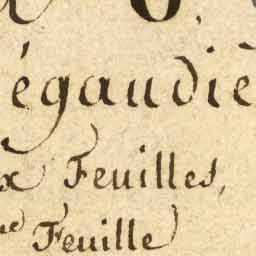 égaudiè
x Feuilles,
re Feuille